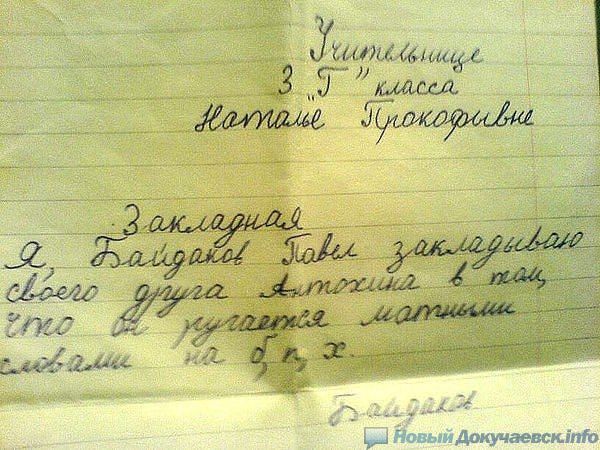 Учительнице
3 „Г” класса
Наталье Прокофивне
Закладная
Я, Байдаков Павел закладываю
своего друга Антохина в том,
что он ругается матными
словами на б, п, х.
Байдаков
Новый Докучаевск.info